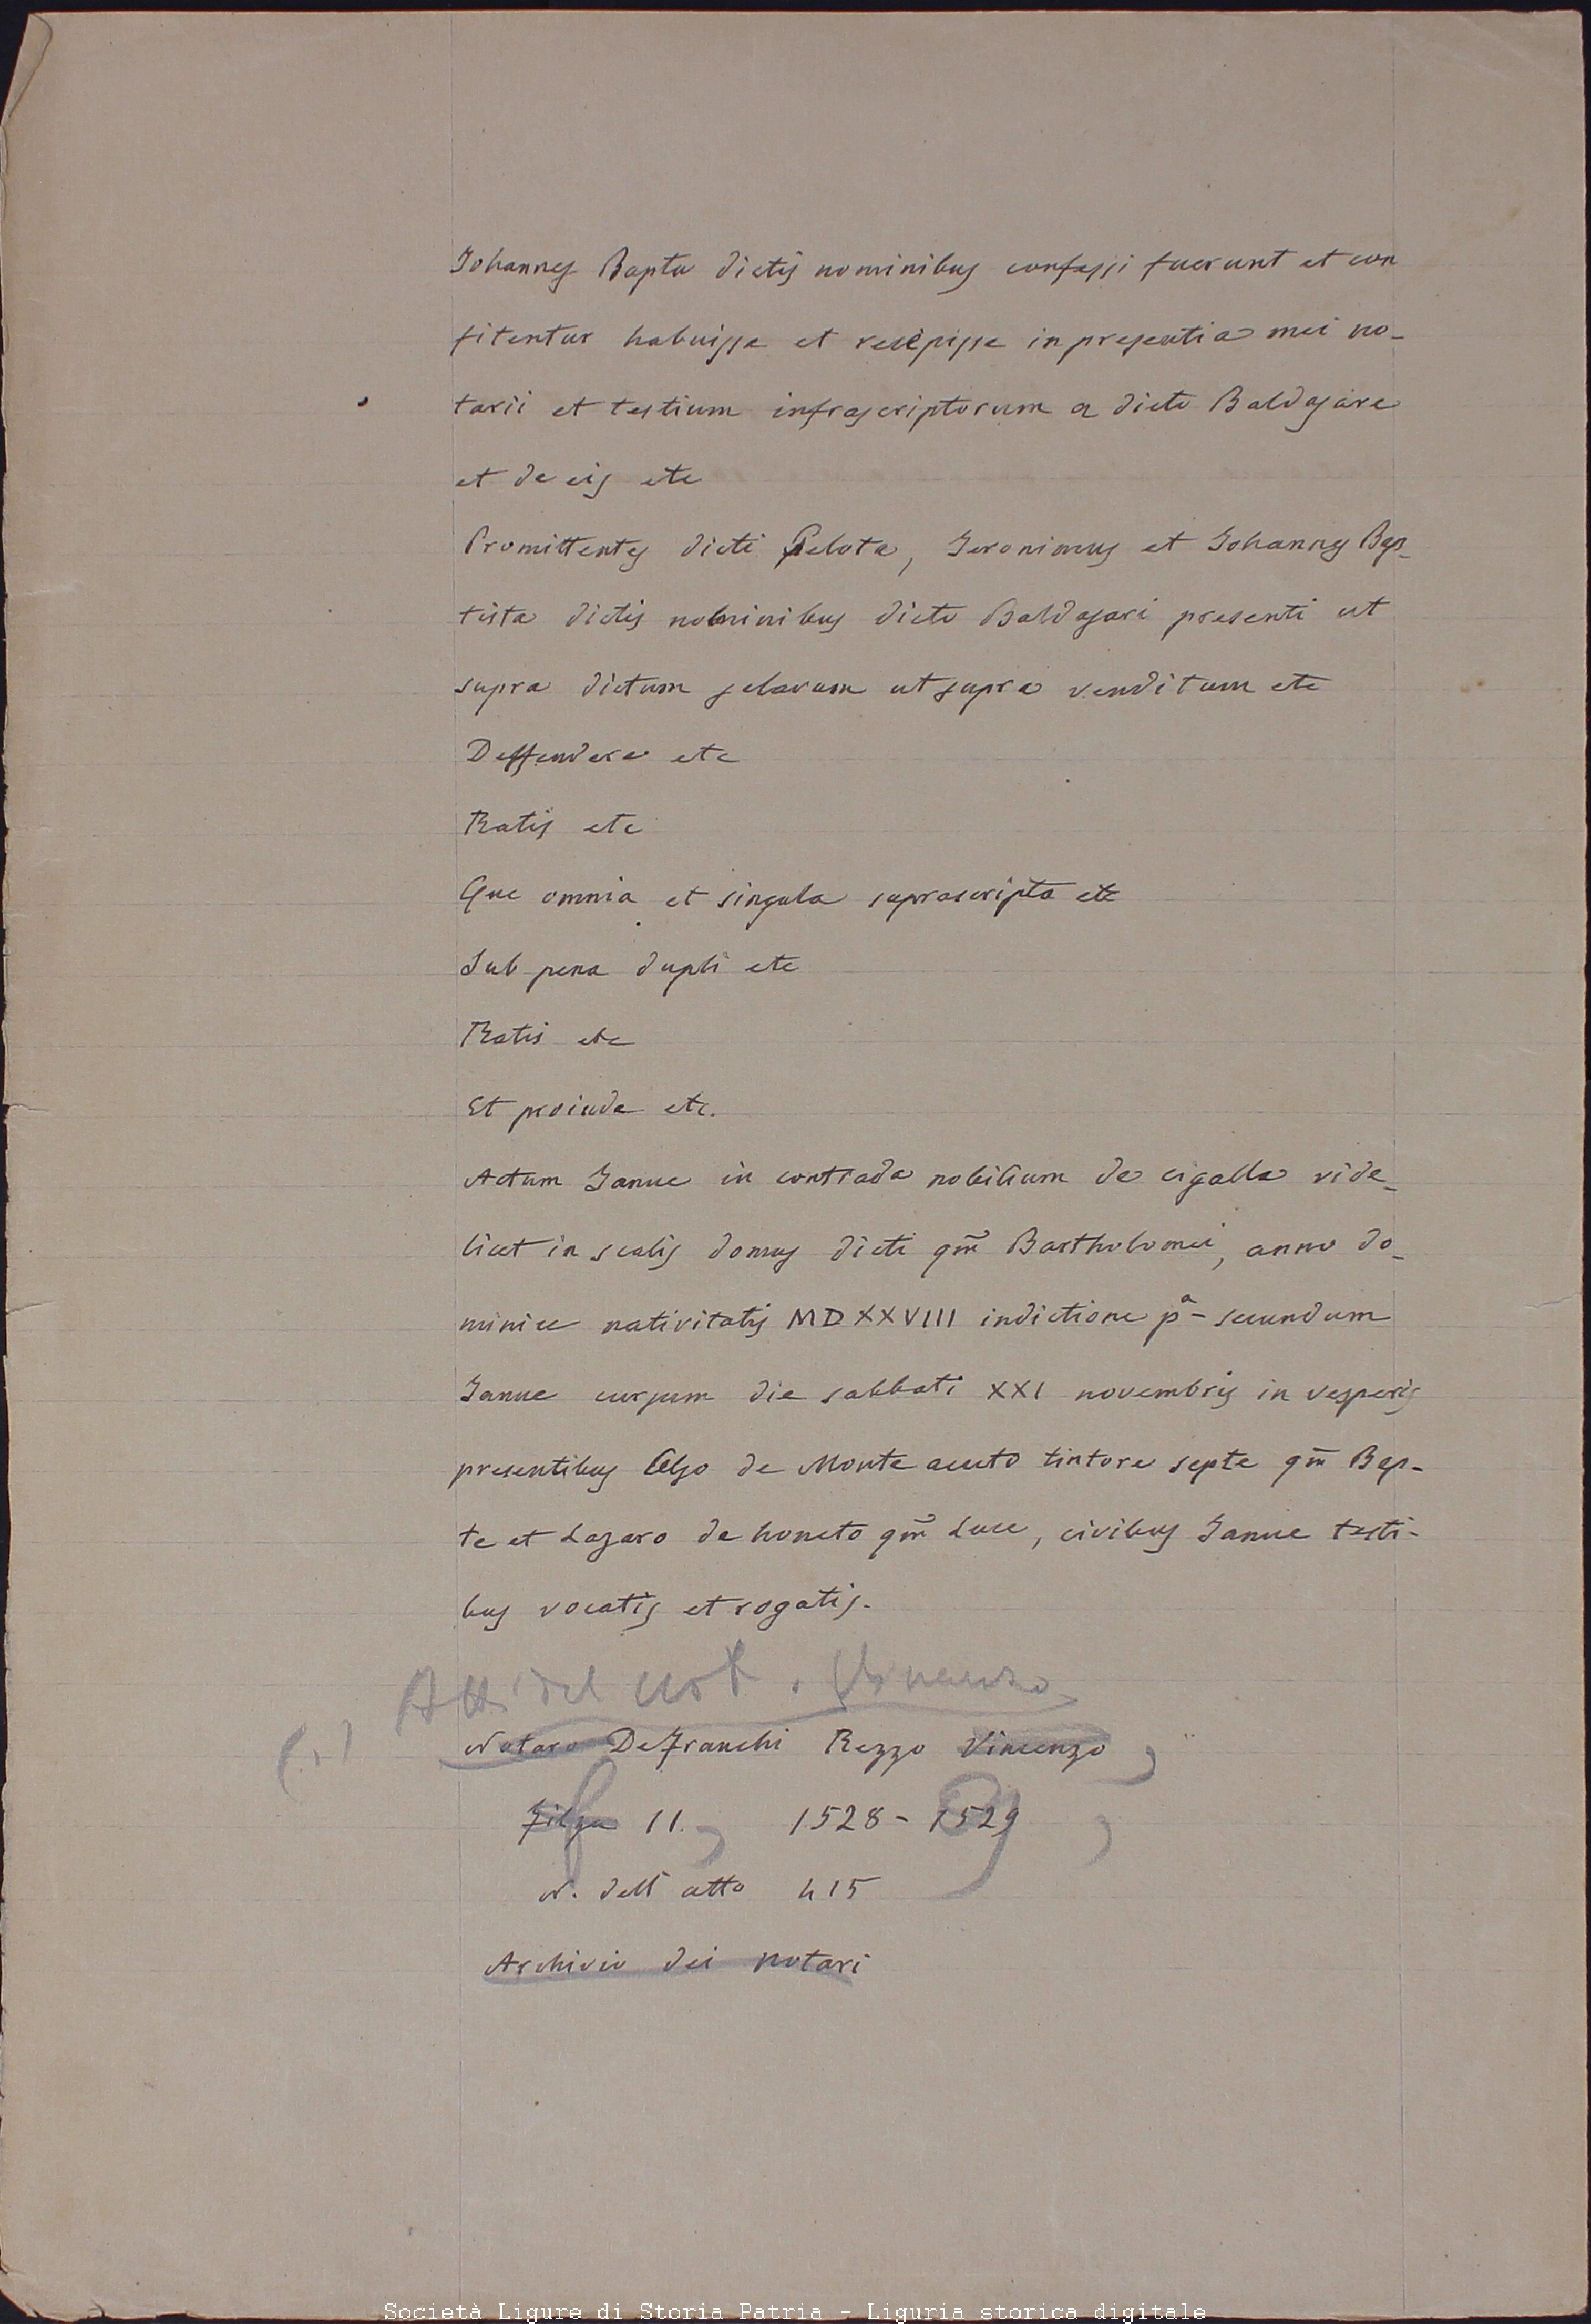 Johannes Bapta dictis nominibus confessi fuerunt et con
fitentur habuisse et recepisse in presentia mei no-
tarii et testium infrascriptorum a dicto Baldasare
et de eis etc
Promittentes dicti Pelota, Jeronimus et Johannes Bap-
tista dictis nominibus dicto Baldasari presenti ut
supra dictum sclavum ut supra venditum etc
Deffendere etc
Ratis etc
Que omnia et singula suprascripta etc
Sub pena dupli etc
Ratis etc
Et proinde etc.
Actum Janue in contrada nobilium de cigalla vide-
licet in scalis domus dicti qm̃ Bartholomei, anno do-
minice nativitatis MDXXVIII indictione pª - secundum
Janue cursum die sabbati XXI novembris in vesperis
presentibus de Monte acuto tintore septe qm̃ Bap-
te et Lazaro de honeto qm̃ Luce, civibus Janue testi-
bus vocatis et rogatis.
Atti del Not. Vincenzo
(1) Notaro De Franchi Rezzo Vincenzo,
Filza 11, 1528-1529
N. dell atto 415
Archivio dei notari
Società Ligure di Storia Patria - Liguria storica digitale